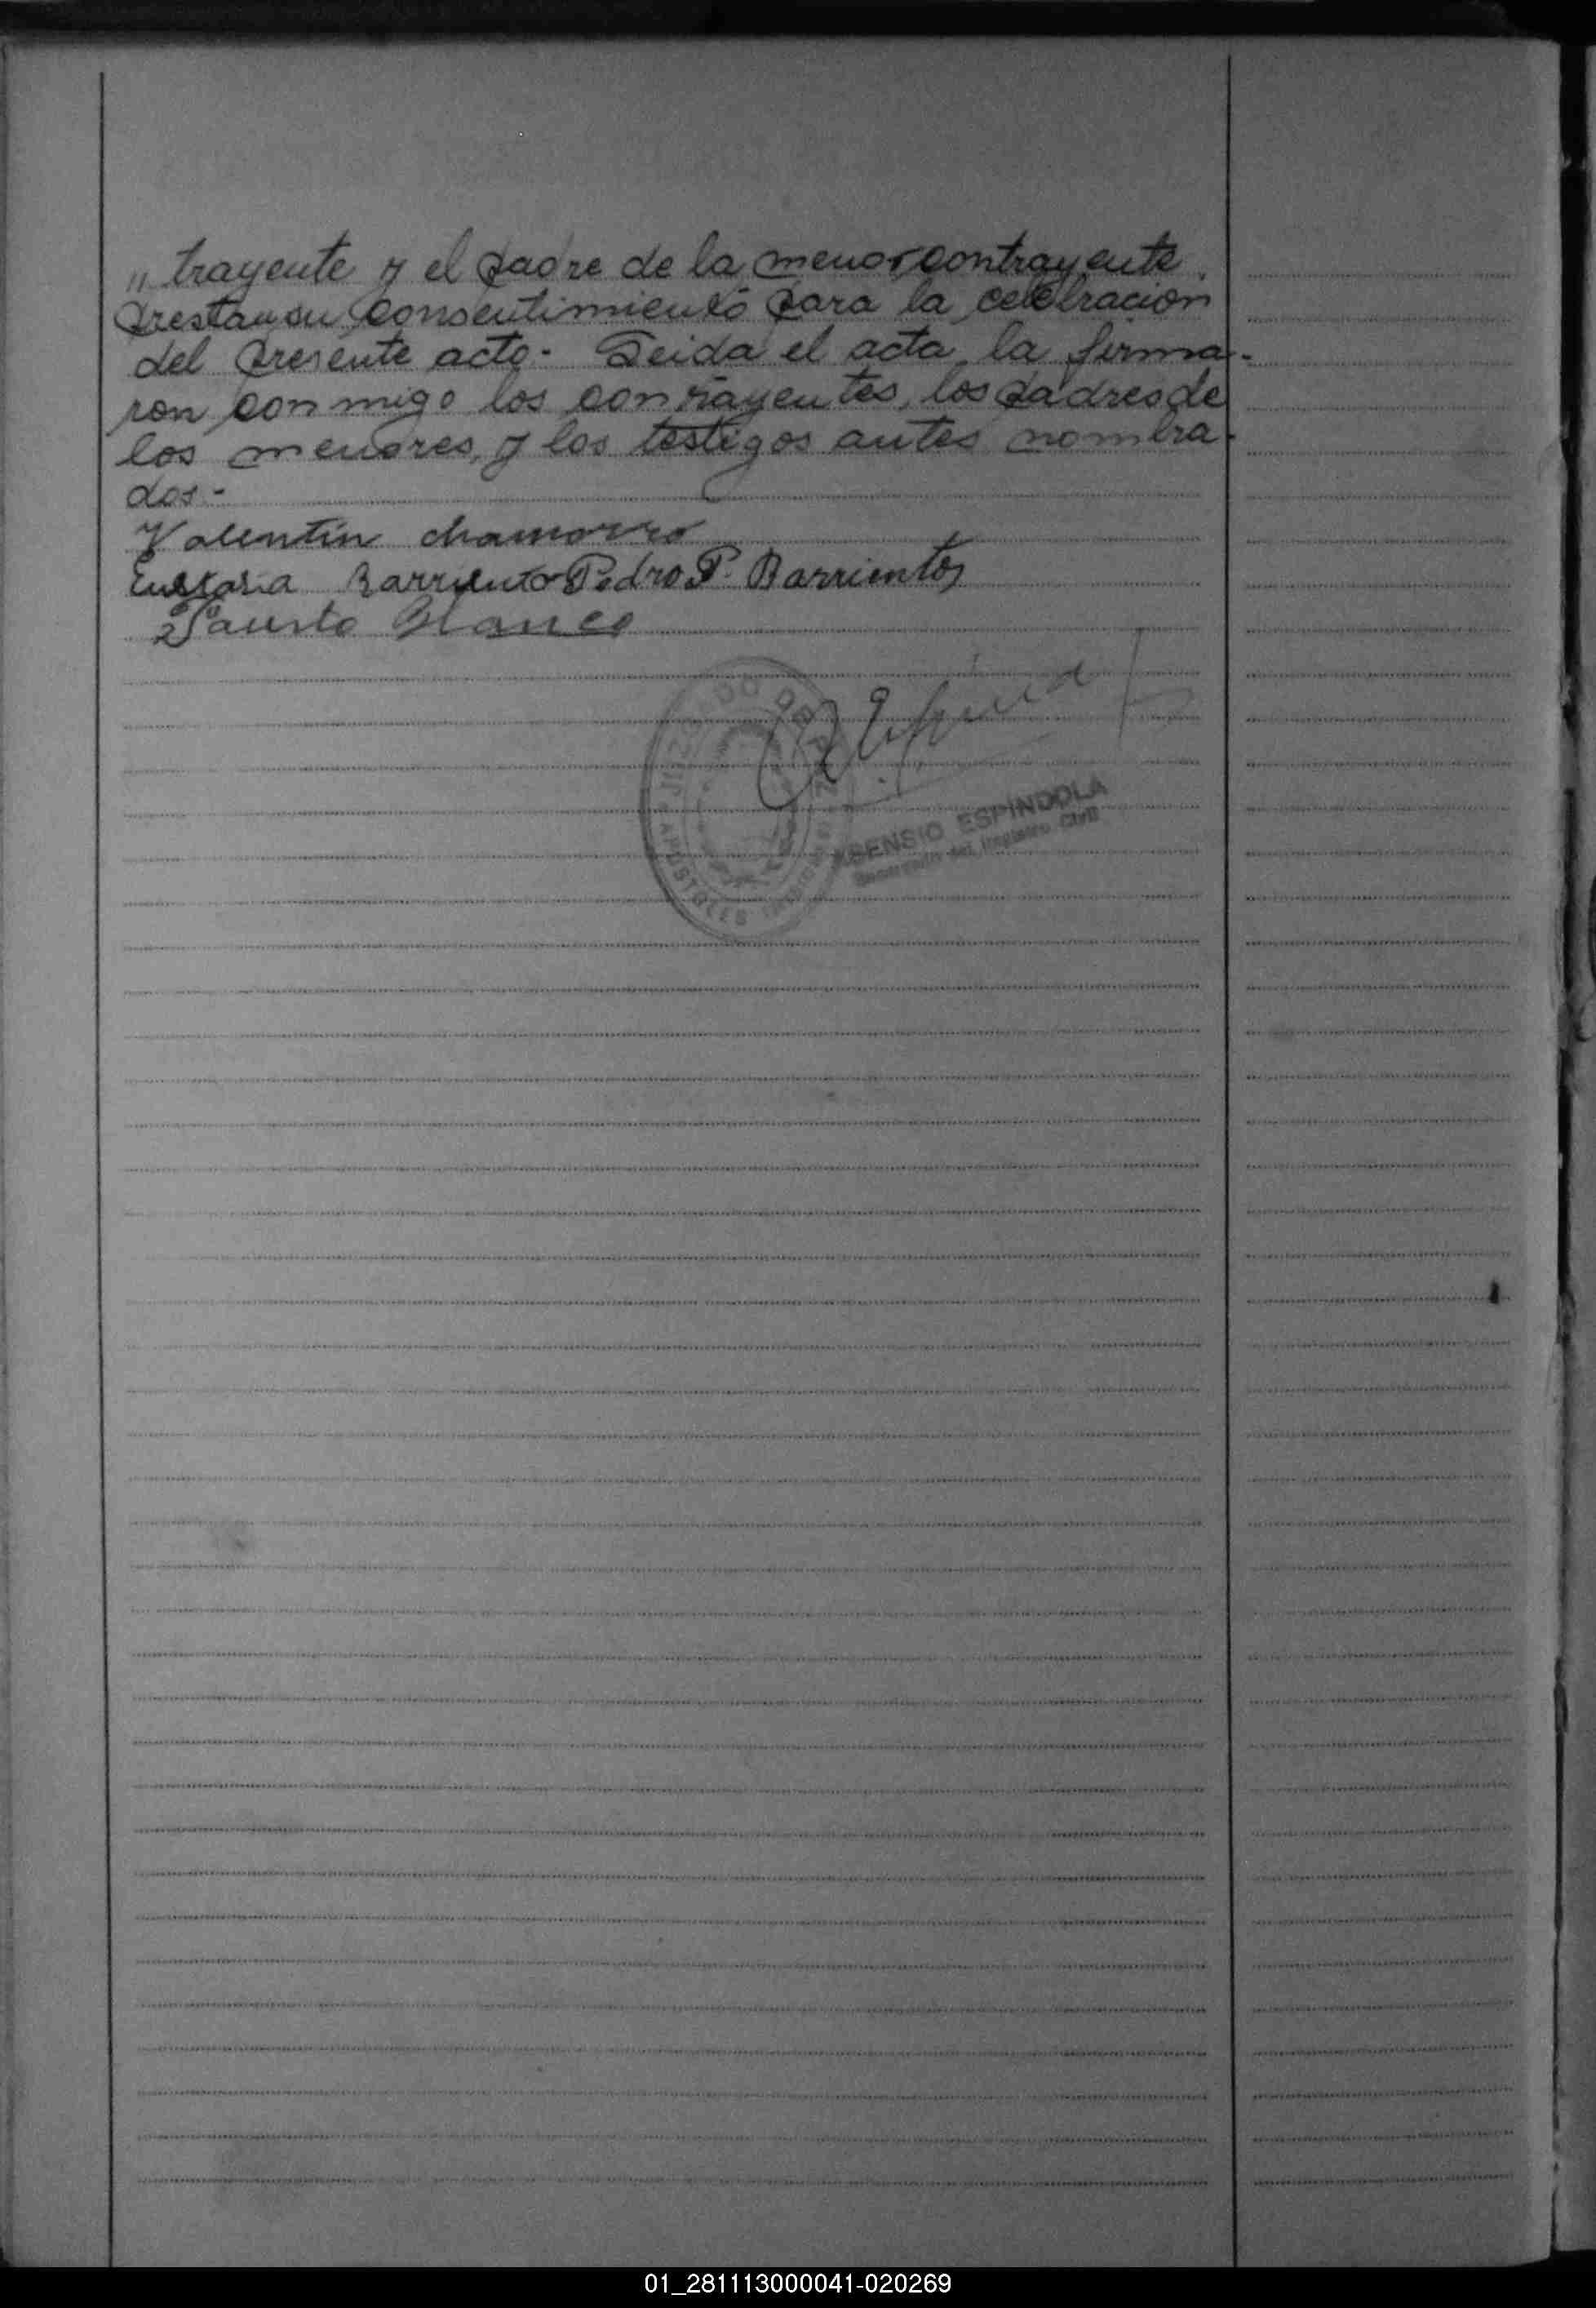 " trayente y el padre de la menor contrayente
prestan su consentimiento para la celebracion
del presente acto.- Leida el acta, la firma-
ron conmigo los contrayentes, los padres de
los menores, y los testigos antes nombra-
dos.-
Valentin chamorro
Eustasia Barriento Pedro P. Barrientos
Fausto Blanco
JUZGADO DE PAZ
APOSTOLES
ASENSIO ESPINDOLA
Secretario del Registro Civil
01_281113000041-020269